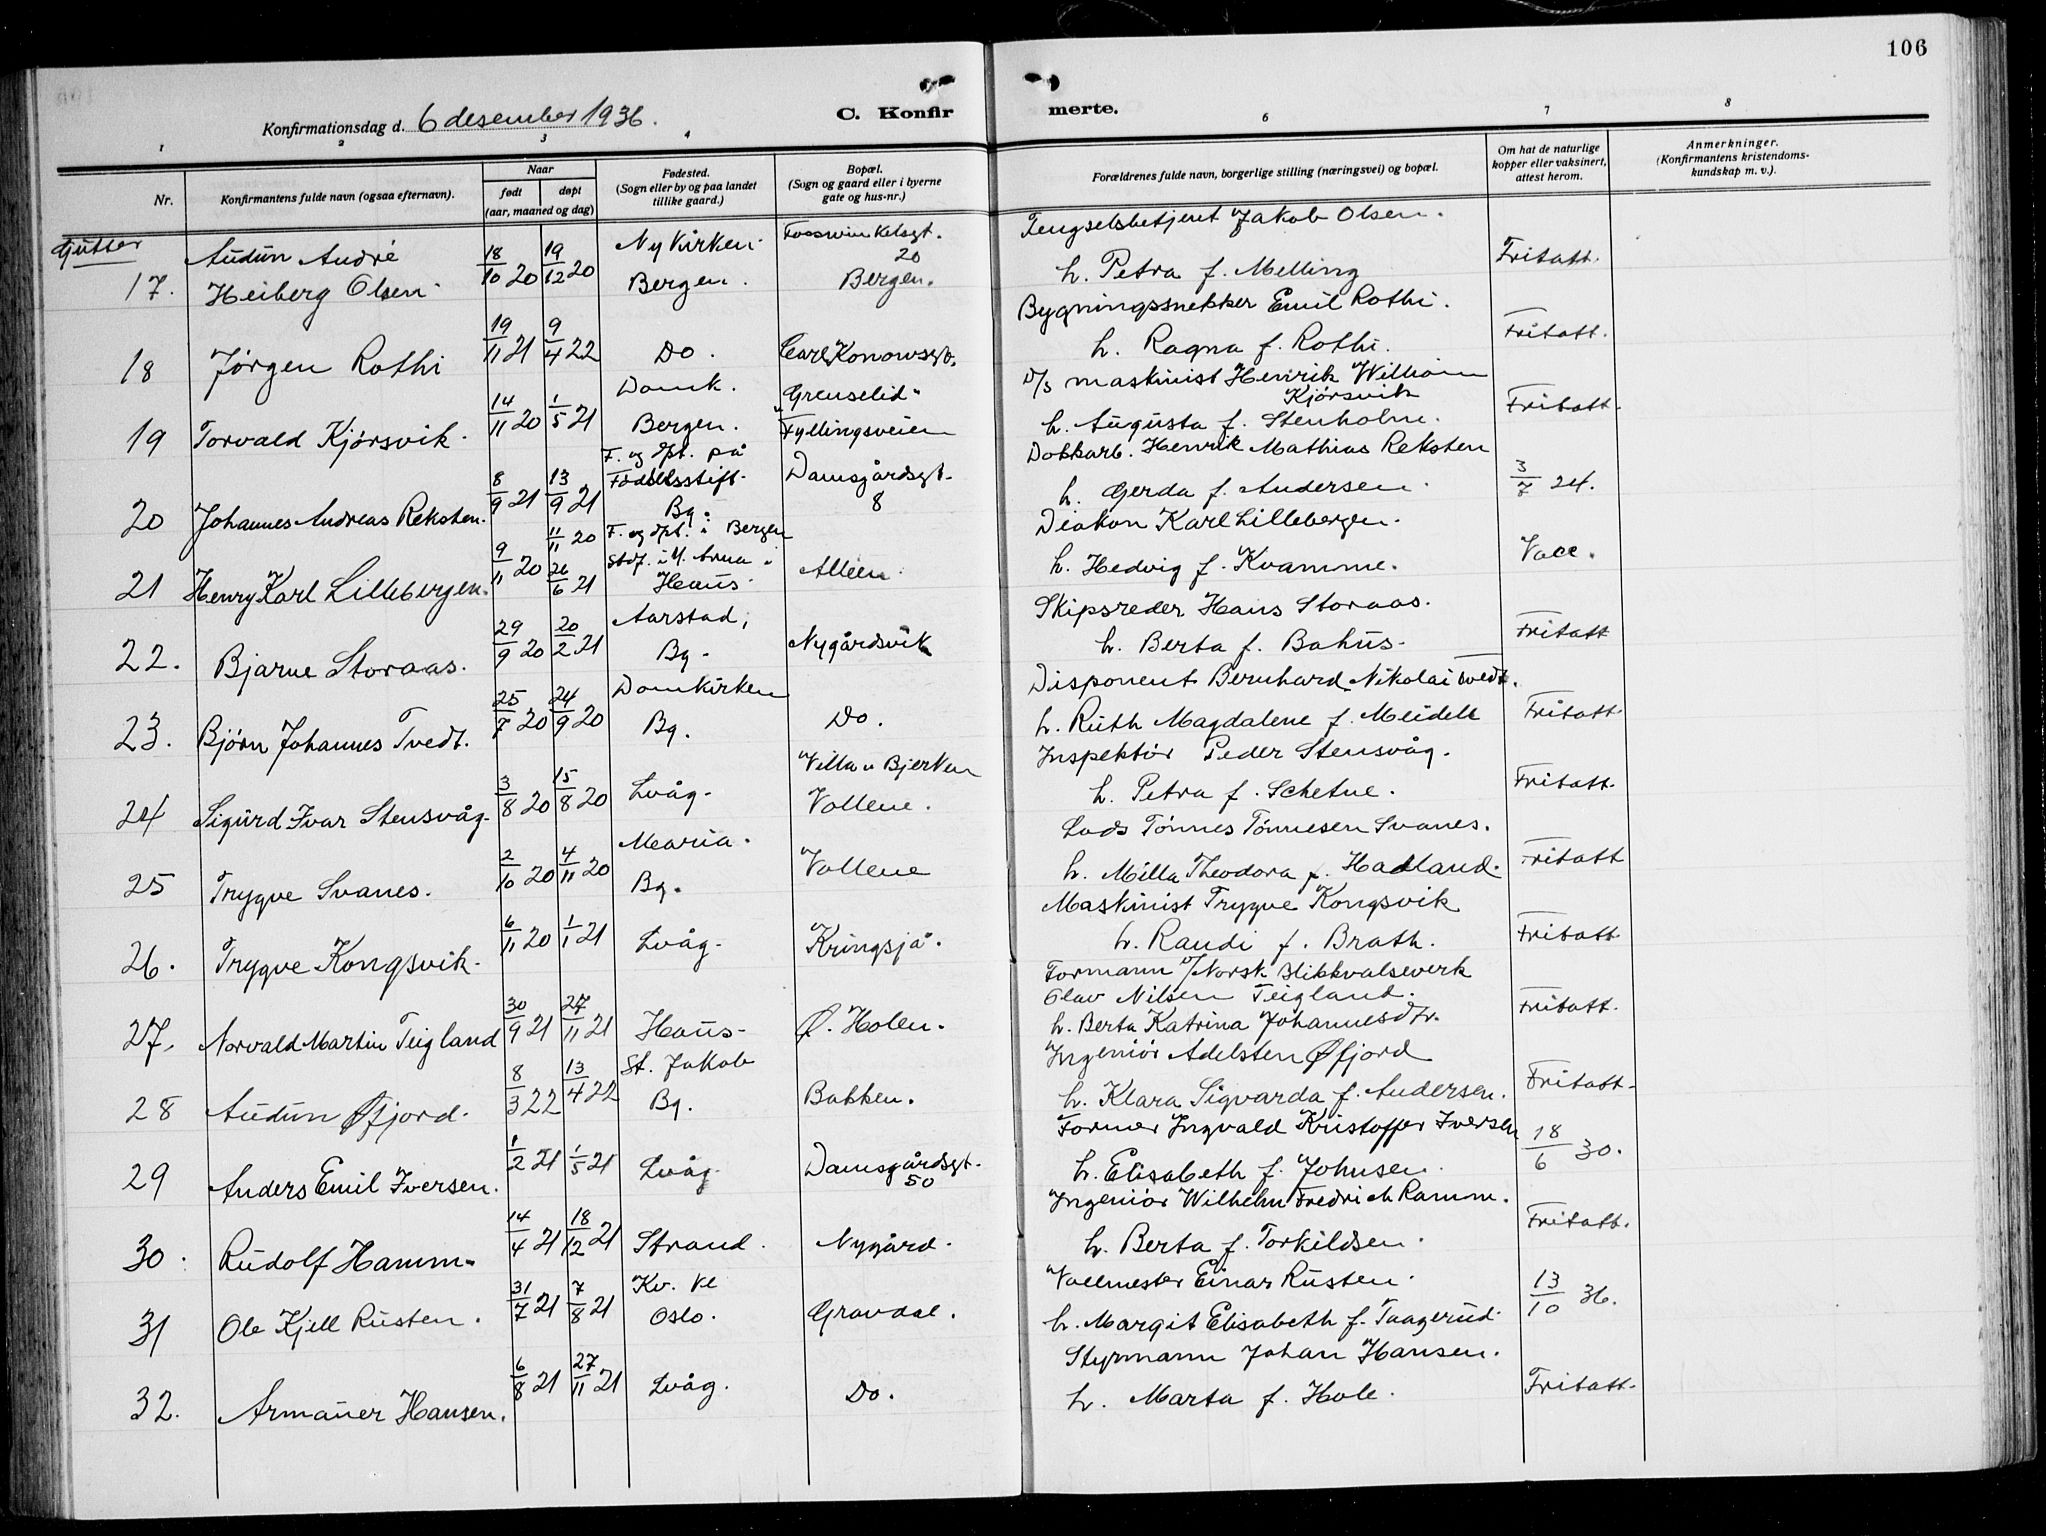 106
Konfirmationsdag d. 6 desember 1936.
C. Konfirmerte.
1 2 3 4 6 7 8
Nr.
Konfirmantens fulde navn (ogsaa efternavn).
Naar
født døpt
(aar, maaned og dag)
Fødested.
(Sogn eller by og paa landet
tillike gaard.)
Bopæl.
(Sogn og gaard eller i byerne
gate og hus-nr.)
Forældrenes fulde navn, borgerlige stilling (næringsvei) og bopæl.
Om hat de naturlige
kopper eller vaksinert,
attest herom.
Anmerkninger.
(Konfirmantens kristendoms-
kundskap m. v.).
Gutter
17. Audun André
Heiberg Olsen. 18/10 20 19/12 20 Nykirken. Bergen. Fosswinkelsgt. 20 Bergen.
Fengselsbetjent Jakob Olsen.
h. Petra f. Melling Fritatt.
18 Jørgen Rothi 19/11 21 9/4 22 Do. Carl Konowsgt.
Bygningssnekker Emil Rothi.
h. Ragna f. Rothi. Fritatt.
19 Torvald Kjørsvik. 14/11 20 1/5 21 Domk. Bergen. Grenselid. Fyllingsveien
D/s maskinist Henrik William
Kjørsvik
h. Augusta f. Stenholm. Fritatt.
20 Johannes Andreas Reksten. 8/9 21 13/9 21 F. og dpt. på Fødselsstift. Bg. Damsgårdsgt. 8
Dokkarb. Henrik Mathias Reksten
h. Gerda f. Andersen. 3/7 24.
21 Henry Karl Lillebergen. 9/11 20 11/11 20 26/6 21 F. og dpt. i Bergen Stdf. i Y. Arna i Haus Alleen.
Diakon Karl Lillebergen.
h. Hedvig f. Kvamme. Vacc.
22. Bjarne Storaas. 29/9 20 20/2 21 Aarstad, Bg. Nygårdsvik
Skipsreder Hans Storaas.
h. Berta f. Bahus. Fritatt
23. Bjørn Johannes Tvedt. 25/7 20 24/9 20 Domkirken Bg. Do.
Disponent Bernhard Nikolai Tvedt.
h. Ruth Magdalene f. Meidell Fritatt.
24 Sigurd Ivar Stensvåg. 3/8 20 15/8 20 Lvåg. Villa "Bjerken Vollene.
Inspektør Peder Stensvåg.
h. Petra f. Schetne. Fritatt.
25 Trygve Svanes. 2/10 20 4/11 20 Maria. Bg. Vollene
Lods Tønnes Tønnesen Svanes.
h. Milla Theodora f. Hadland. Fritatt
26. Trygve Kongsvik. 6/11 20 1/1 21 Lvåg. Kringsjå.
Maskinist Trygve Kongsvik
h. Randi f. Brath. Fritatt.
27. Norvald Martin Teigland 30/9 21 27/11 21 Haus. Ø. Holen.
Formann v/Norsk Blikkvalseverk
Olav Nilsen Teigland.
h. Berta Katrina Johannesdtr. Fritatt.
28 Audun Øfjord. 8/3 22 13/4 22 St. Jakob Bg. Bakken.
Ingeniør Adelsten Øfjord
h. Klara Sigvarda f. Andersen. Fritatt.
29 Anders Emil Iversen. 1/2 21 1/5 21 Lvåg Damsgårdsgt. 50
Former Ingvald Kristoffer Iversen
h. Elisabeth f. Johnsen. 18/6 30.
30. Rudolf Hamm. 14/4 21 18/12 21 Strand. Nygård.
Ingeniør Wilhelm Fredrich Ramm.
h. Berta f. Torkildsen. Fritatt.
31 Ole Kjell Rusten. 31/7 21 7/8 21 Kv. kl Oslo. Gravdal.
Vallmester Einar Rusten.
h. Margit Elisabeth f. Taagerud. 13/10 36.
32. Armauer Hansen. 6/8 21 27/11 21 Lvåg. Do.
Styrmann Johan Hansen.
h. Marta f. Hole. Fritatt.